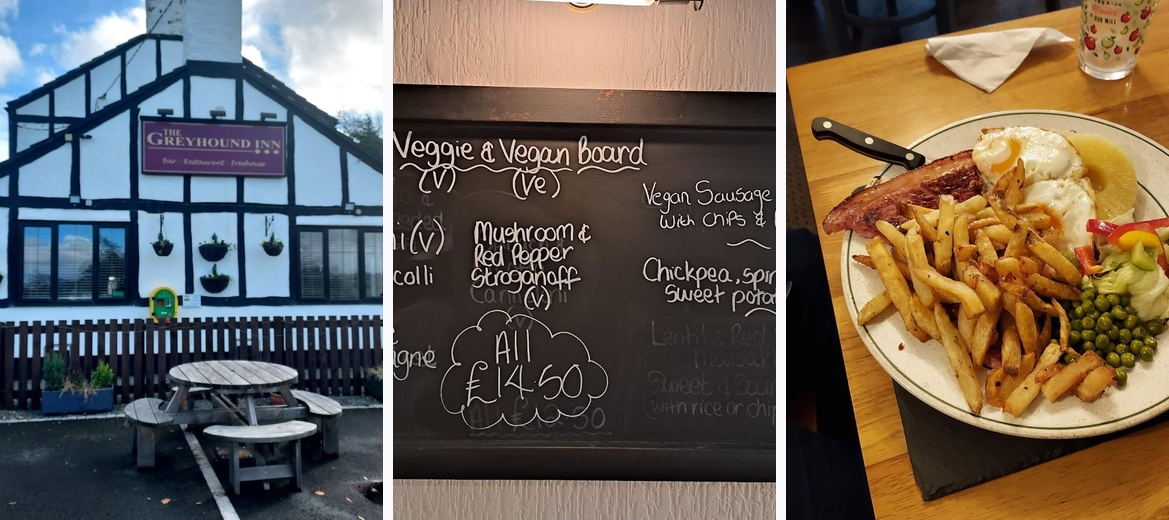 THE
GREYHOUND INN
Bar · Restaurant · Freehouse
Veggie & Vegan Board
(V) (Ve)
i (V)
colli
Mushroom &
Red Pepper
Stroganoff
(V)
All
£14.50
All £12.50
Vegan Sausage
with Chips &
Chickpea, spin
Sweet pota
Lentil & Red
Mousak
Sweet & Sour
(with rice or chip